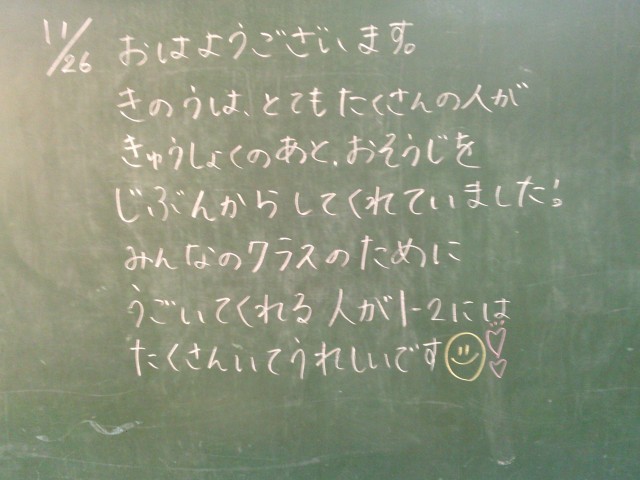 11/26 おはようございます。
きのうは、とてもたくさんの人が
きゅうしょくのあと、おそうじを
じぶんからしてくれていました!
みんなのクラスのために
うごいてくれる人が1-2には
たくさんいてうれしいです